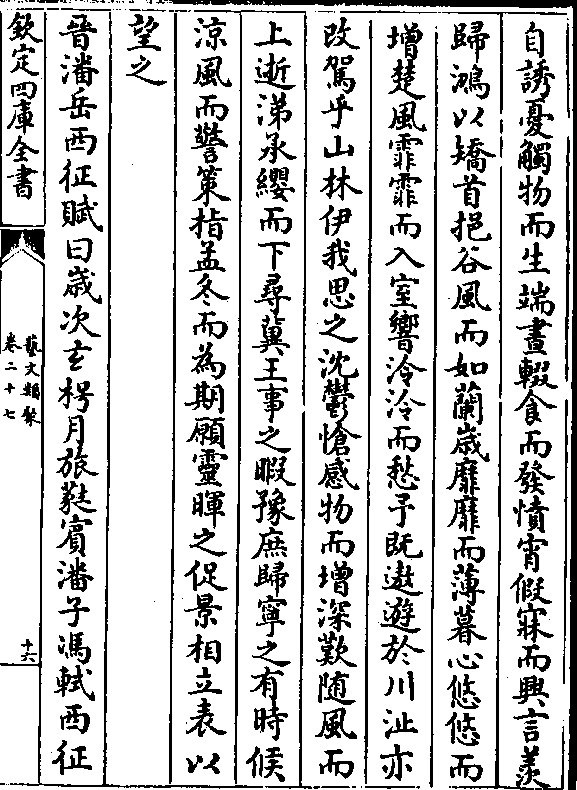 自誘憂觸物而生端晝輟食而發憤宵假寐而興言羨
歸鴻以矯首挹谷風而如蘭歳靡靡而薄暮心悠悠而
增楚風霏霏而入室響泠泠而愁予既遨遊於川沚亦
改駕乎山林伊我思之沈鬱愴感物而增深歎随風而
上逝涕承纓而下尋冀王事之暇豫庶歸寧之有時候
涼風而警策指孟冬而為期願靈暉之促景相立表以
望之
晉潘岳西征賦曰歳次玄枵月旅蕤賓潘子馮軾西征
欽定四庫全書
藝文類聚
卷二十七
十六